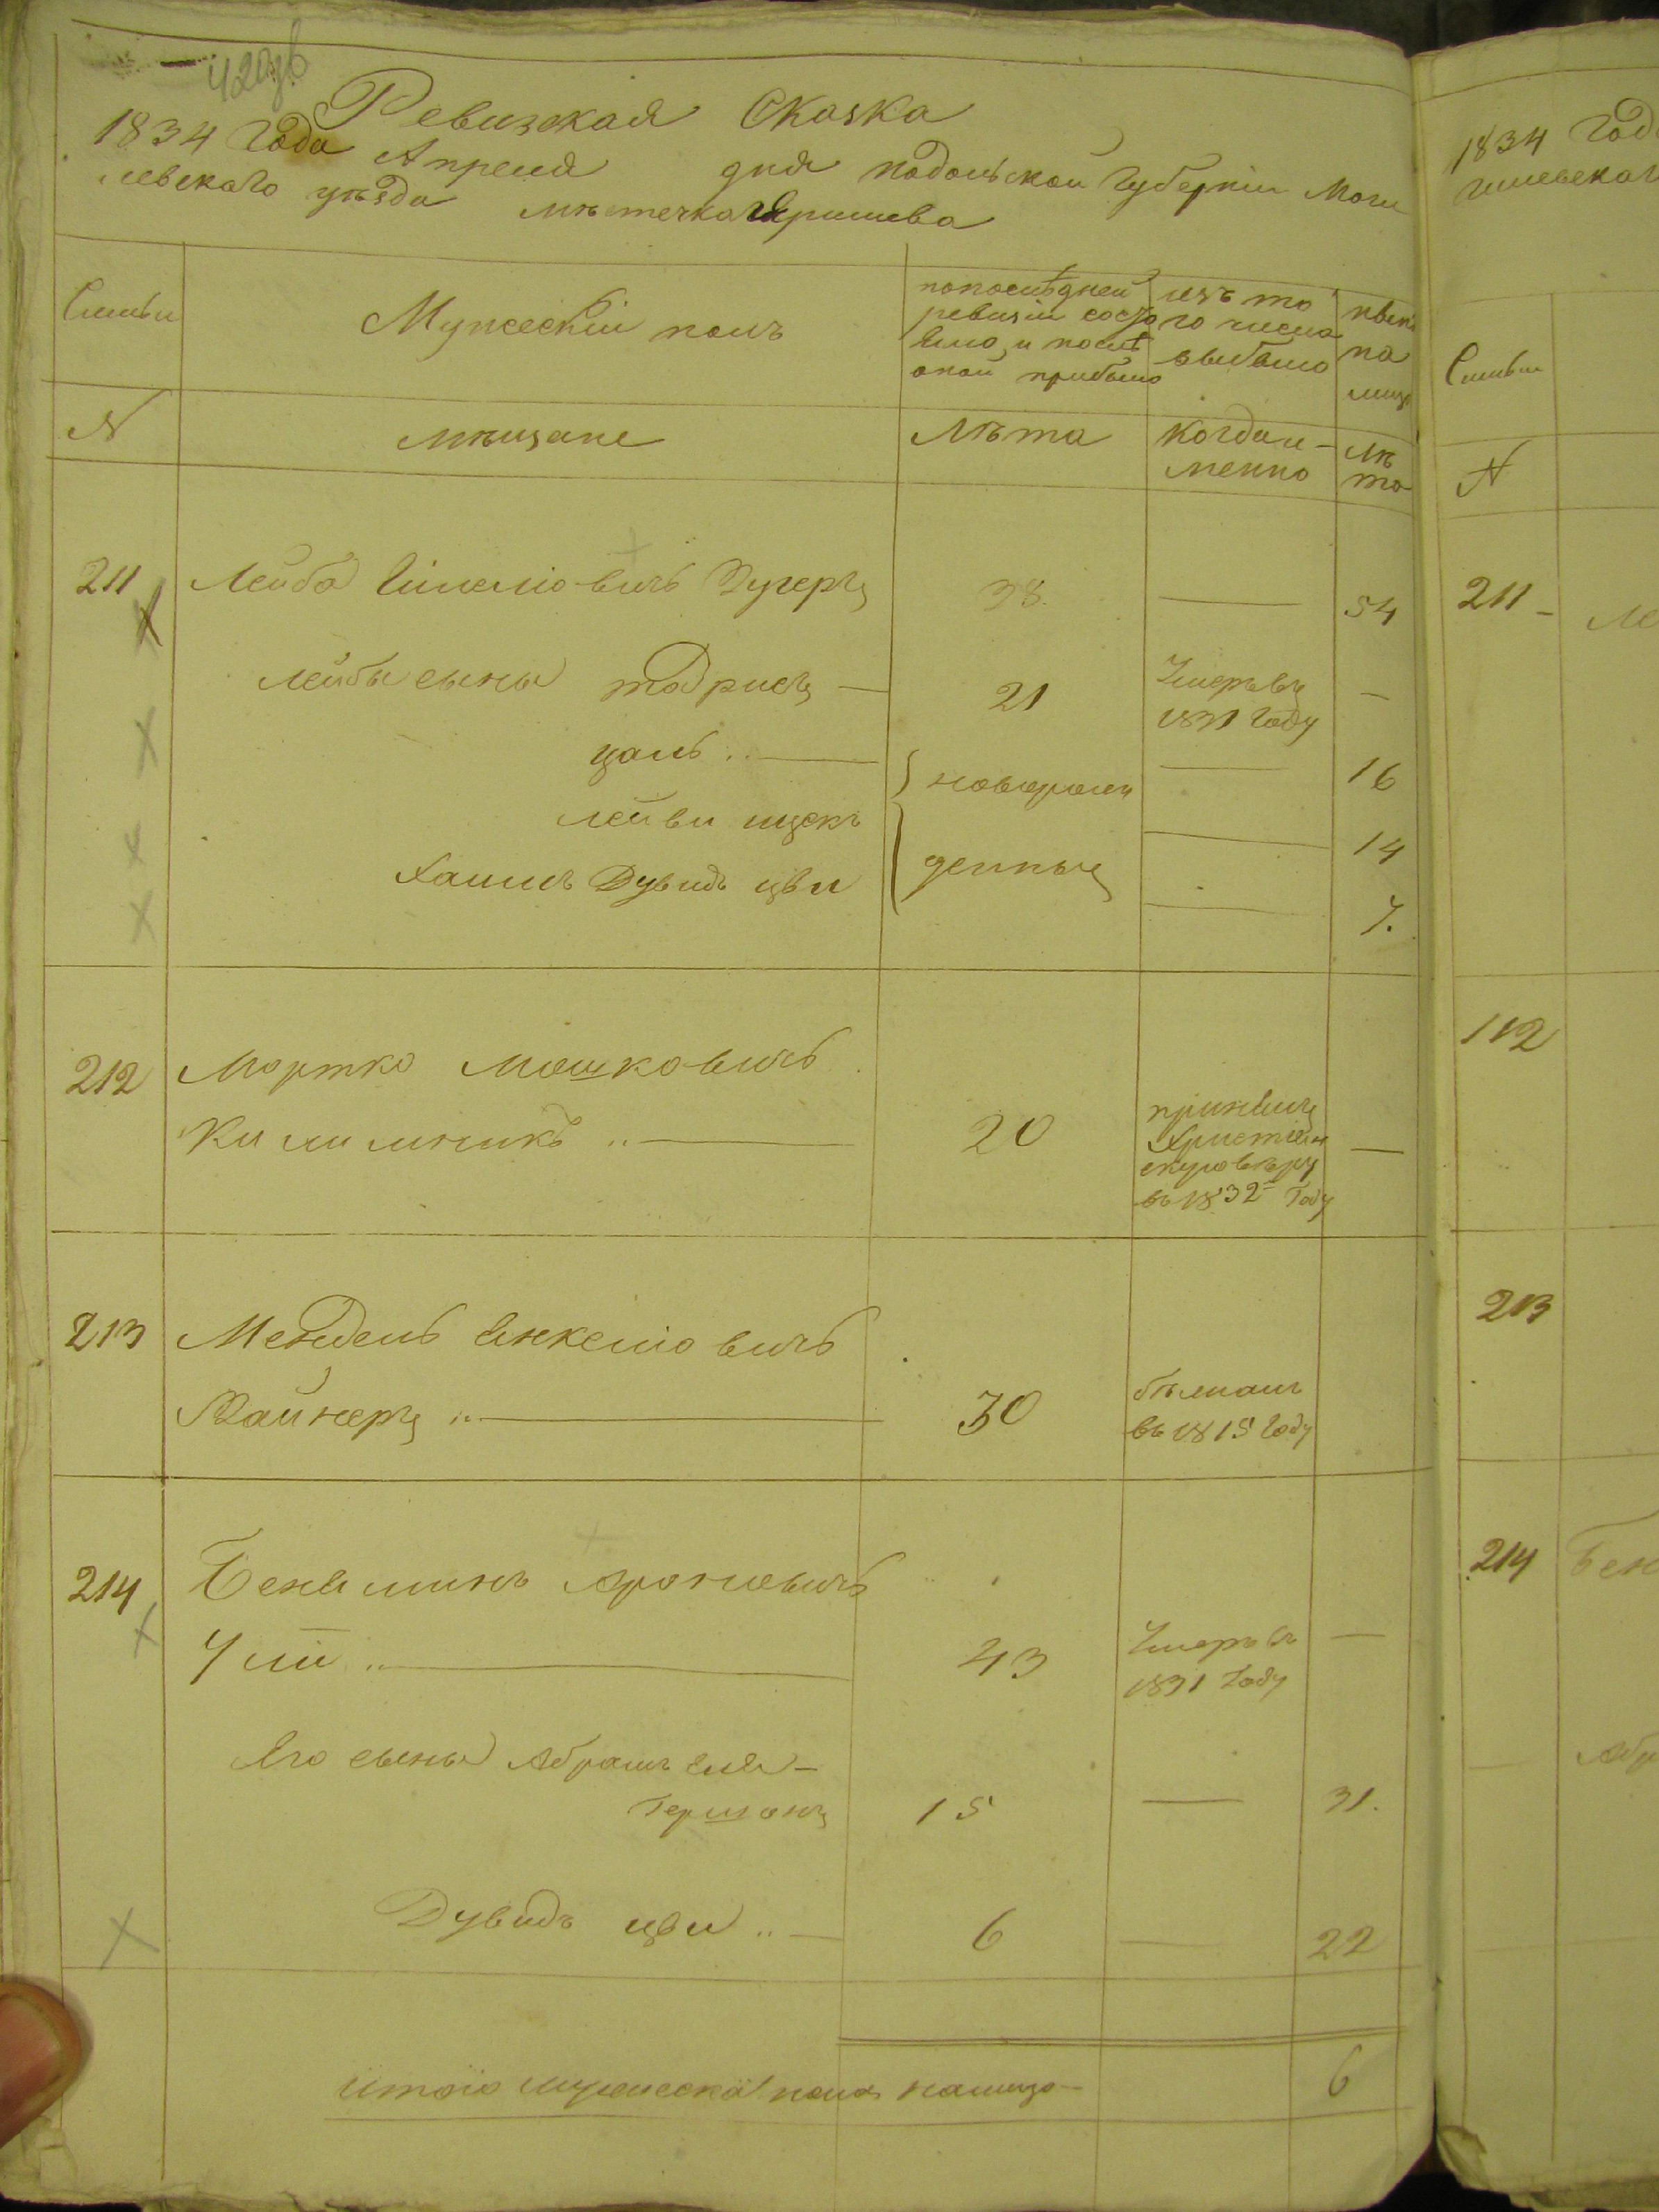 Ревизская Сказка
1834 Года Апреля дня подольской Губернии Моги
левскаго уезда местечка Яришева
Семьи
Мужеский полъ
попоследней
ревизии состо
яло, и после
оной прибыло
изъ то
го числа
выбыло
ныне
на
лицо
N
мещане
Лета
Когда и
менно
Ле
та
211
Лейба Шмелiовичъ Зугеръ
38.
54
Лейбы сыны
21
Умеръ въ
1831 Году
—
цаль
новорож
16
Лейви ицекъ
14
Хаимъ Дувидъ цви
денные
7.
212
Мортко Мошковичъ
Килимникъ
20
принялъ
Христиан
скую веру
въ 1832 Году
—
213
Мендель Янкелiовичъ
Вайнеръ
30
въ 1815 Году
214
Бенямин Ароновичъ
43
Умеръ въ
1831 Году
—
Его сыны Абрамъ
Гершонъ
15
31.
Дувидъ цви
6
22
Итого мужеска пола налицо
6
1834 Год
Семьи
N
211
Ле
112
213
214
Бен
Абр